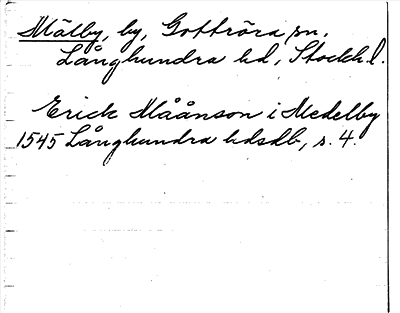 Mälby, by, Gottröra sn.
Långhundra hd, Stockh. l.
Erick Måånson i Medelby
1545 Långhundra hdsdb, s. 4.